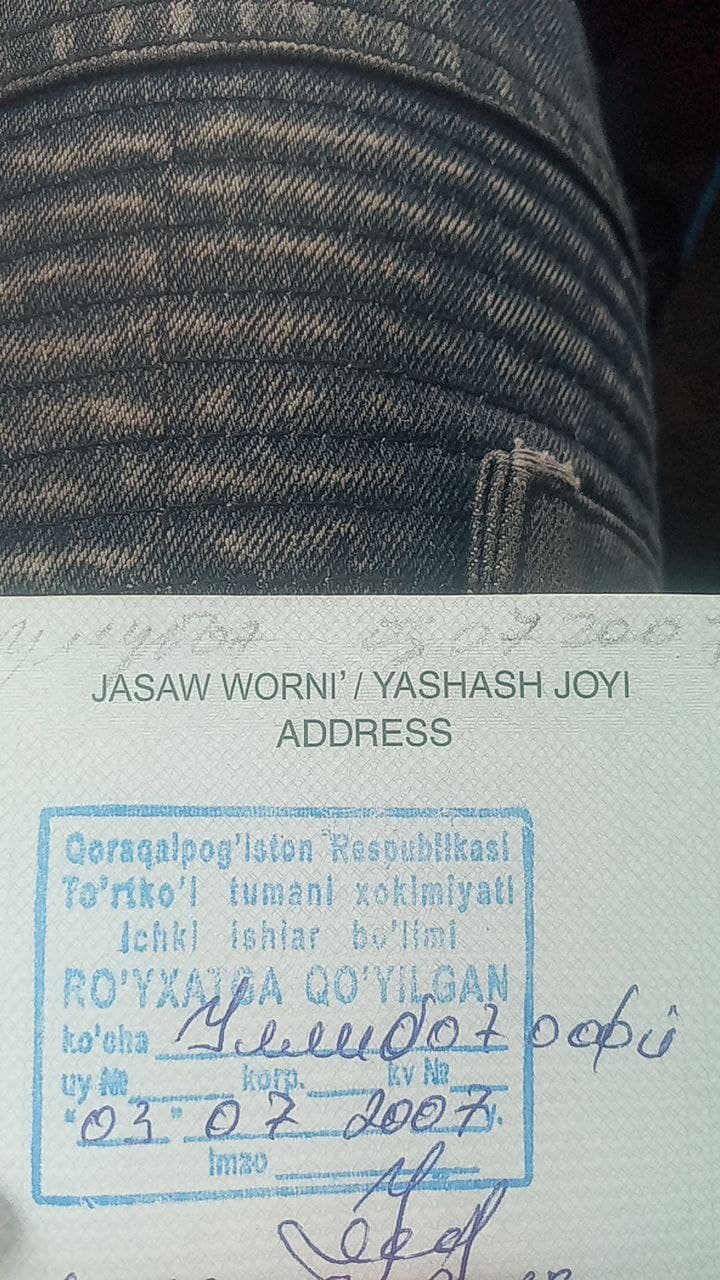 03 07 2007
JASAW WORNI' / YASHASH JOYI
ADDRESS
Qoraqalpog'iston Respublikasi
To'rtko'l tumani xokimiyati
Ichki ishlar bo'limi
RO'YXATGA QO'YILGAN
ko'cha
uy № korp. kv №
"03" 07 2007 y.
Imzo